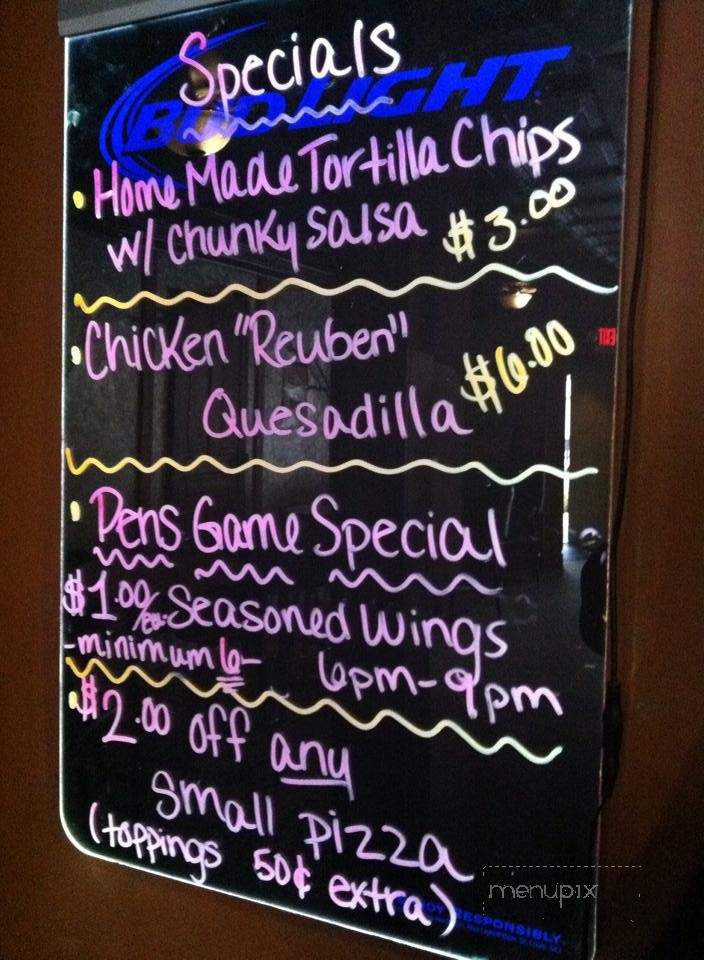 Specials
BUD LIGHT
• Home Made Tortilla Chips
w/ chunky salsa $3.00
• Chicken "Reuben"
Quesadilla $6.00
• Pens Game Special
$1.00/ea. Seasoned Wings
-minimum 6- 6pm-9pm
• $2.00 off any
small pizza
(toppings 50¢ extra)
menupix
RESPONSIBLY.
EXIT